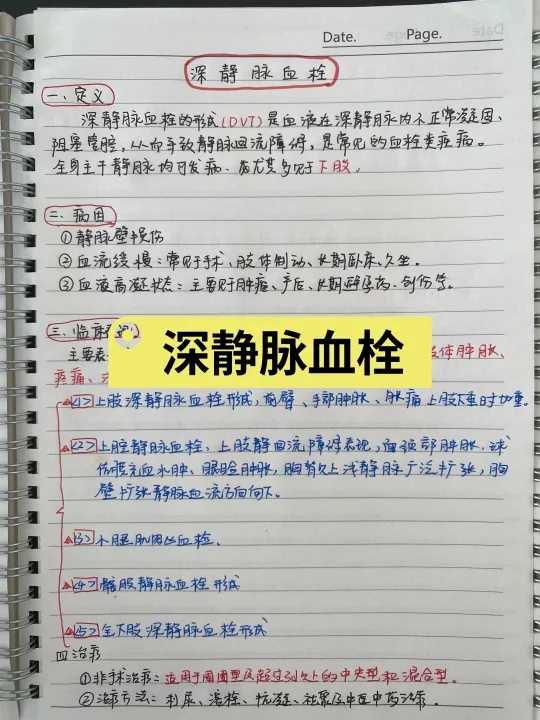 Date.
Page.
深静脉血栓
一、定义
深静脉血栓的形成(DVT)是血液在深静脉内不正常凝固、
阻塞管腔，从而导致静脉回流障碍，是常见的血栓类疾病。
全身主干静脉均可发病，尤其多见于下肢。
二、病因
①静脉壁损伤
②血流缓慢：常见于手术、肢体制动、长期卧床、久坐。
③血液高凝状态：主要见于肿瘤、产后、长期避孕药、创伤等。
三、临床
深静脉血栓
主要表 肢体肿胀、
疼痛、
<1>上肢深静脉血栓形成，前臂、手部肿胀、胀痛上肢下垂时加重。
<2>上腔静脉血栓，上肢静回流障碍表现，面颈部肿胀，球
结膜充血水肿、眼睑肿胀，胸背以上浅静脉广泛扩张，胸
壁扩张静脉血流方向向下。
<3>小腿肌肉丛血栓。
<4>髂股静脉血栓形成
<5>全下肢深静脉血栓形成
四治疗
①非手术治疗：适用于周围型及超过3d以上的中央型和混合型。
②治疗方法：利尿、溶栓、抗凝、祛聚及中医中药治疗。